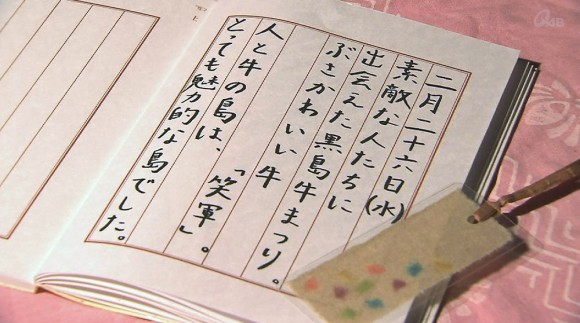 二月二十六日(水)
素敵な人たちに
出会えた黒島牛まつり。
ぶさかわいい牛
人と牛の島は、「笑軍」。
とっても魅力的な島でした。